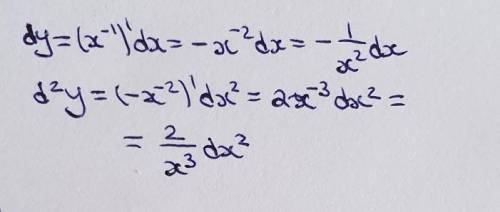 dy = (x⁻¹)' dx = -x⁻² dx = - 1/x² dx
d²y = (-x⁻²)' dx² = 2x⁻³ dx² =
= 2/x³ dx²